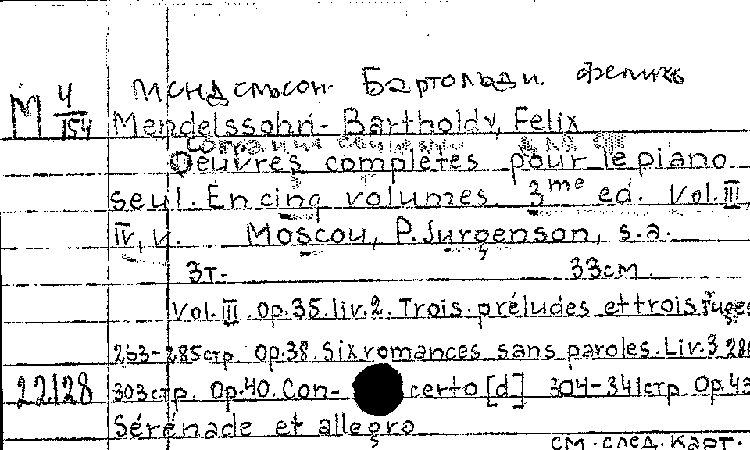 Мендельсон Бартольди. Феликс
М 4/154 Mendelssohn-Bartholdy, Felix
Oeuvres complètes pour le piano
seul. En cinq volumes. 3me ed. Vol. III,
IV, V. Moscou, P. Jurgenson, s.a.
3т. 33см.
Vol. III. Op. 35. liv. 2. Trois préludes et trois fuges
263-285стр. Op. 38. Six romances sans paroles. Liv. 3 286
22128 303стр. Op. 40. Con-certo [d] 304-341стр Op. 43
Sérénade et allegro
см. след. карт.